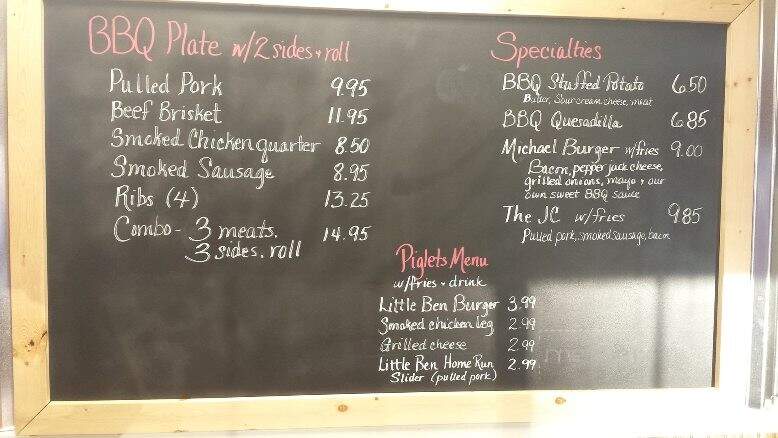 BBQ Plate w/2 sides + roll
Pulled Pork 9.95
Beef Brisket 11.95
Smoked Chicken quarter 8.50
Smoked Sausage 8.95
Ribs (4) 13.25
Combo - 3 meats. 14.95
3 sides. roll
Specialties
BBQ Stuffed Potato 6.50
Butter, Sour cream, cheese, meat
BBQ Quesadilla 6.85
Michael Burger w/fries 9.00
Bacon, pepper jack cheese,
grilled onions, mayo + our
own sweet BBQ sauce
The JC w/fries 9.85
Pulled pork, smoked sausage, bacon
Piglets Menu
w/fries + drink
Little Ben Burger 3.99
Smoked chicken leg 2.99
Grilled cheese 2.99
Little Ben Home Run 2.99
Slider (pulled pork)